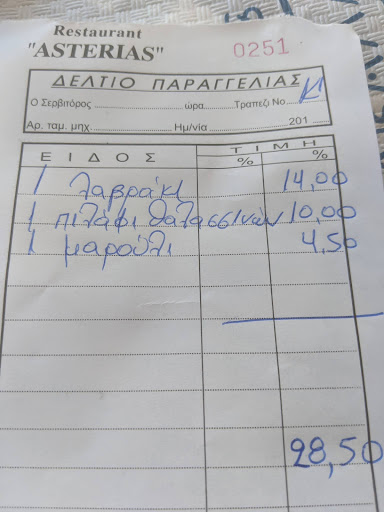 Restaurant
"ASTERIAS"
0251
ΔΕΛΤΙΟ ΠΑΡΑΓΓΕΛΙΑΣ
Ο Σερβιτόρος ώρα Τραπεζι Νο Κ
Αρ. ταμ. μηχ. Ημ/νία 201
ΕΙΔΟΣ ΤΙΜΗ
% %
1 λαβράκι 14,00
1 πιλάφι θαλασσινών 10,00
1 μαρούλι 4,50
28,50